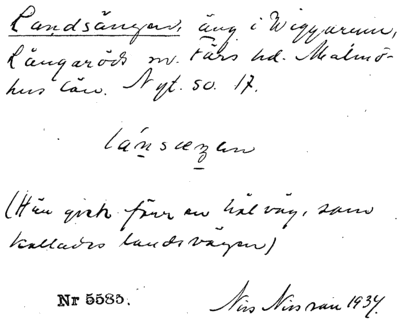 Landsängen, äng i Wiggarum,
Långaröds sn. Färs hd. Malmö-
hus län. Nyt. 50. 17.
lánsæŋen
(Här gick förr en hålväg, som
kallades landsvägen)
Nr 5585. Nils Nilsson 1934.